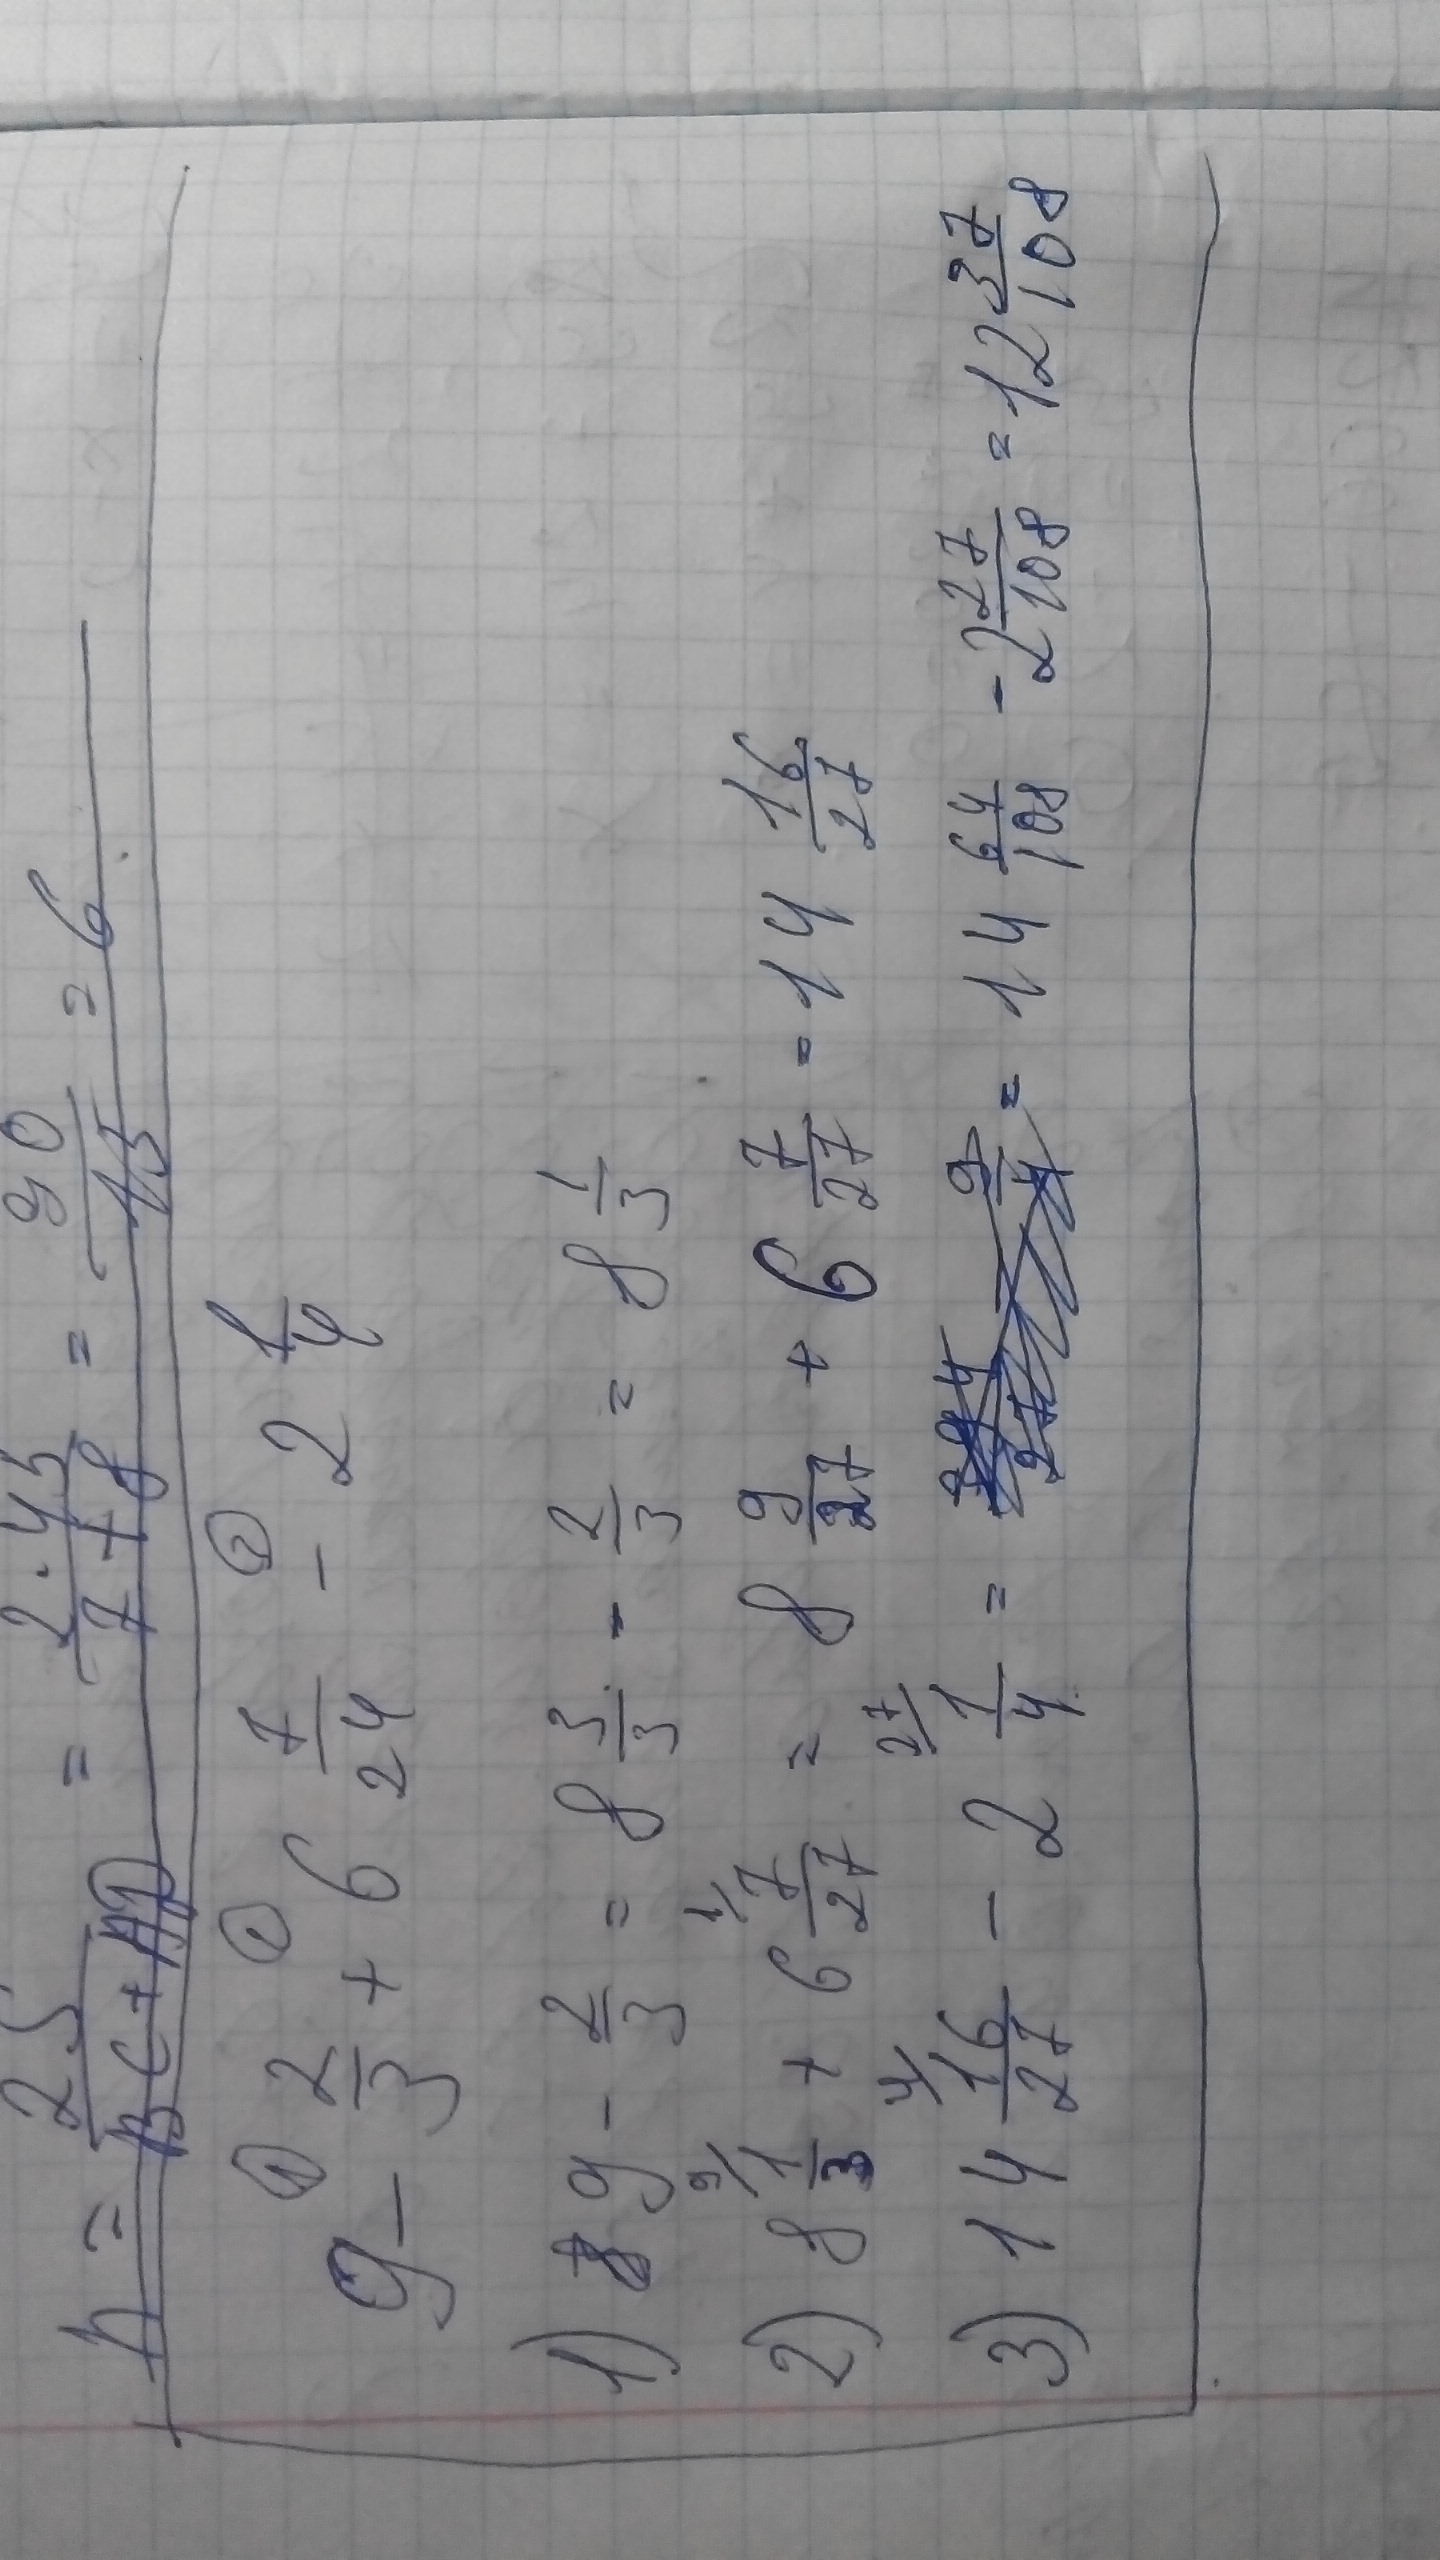 h = 2S/(BC+AD) = 2·45/(7+8) = 90/15 = 6
① ① ②
9 - 2/3 + 6 7/24 - 2 1/4
1) 9 - 2/3 = 8 3/3 - 2/3 = 8 1/3
2) 8 1/3 + 6 7/27 = 8 9/27 + 6 7/27 = 14 16/27
3) 14 16/27 - 2 1/4 = 14 64/108 - 2 27/108 = 12 37/108